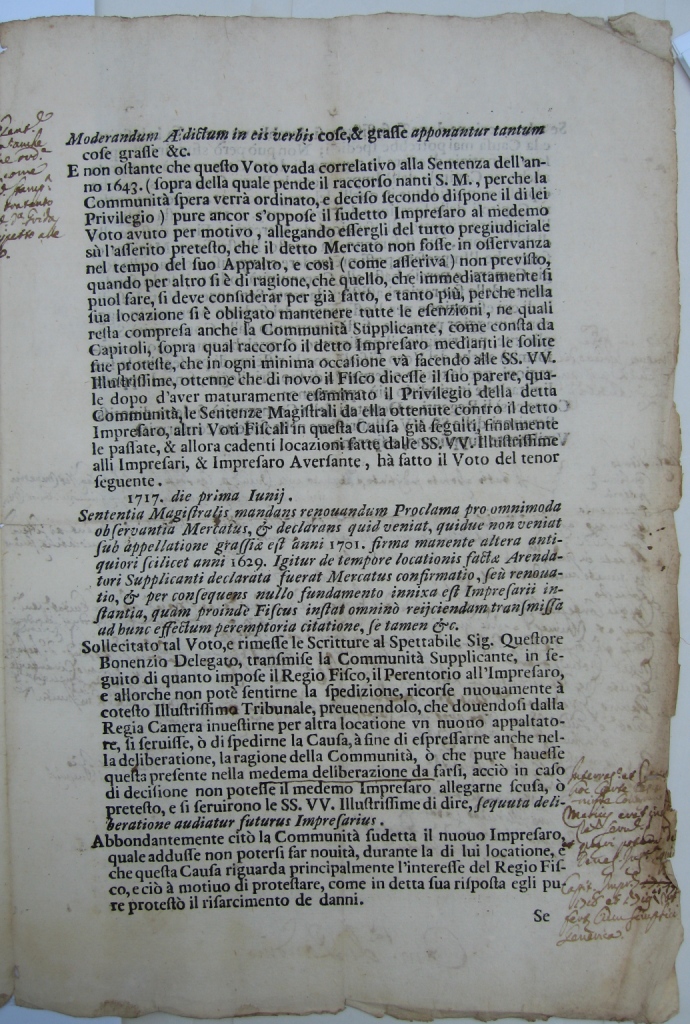 Moderandum Ædictum in eis verbis cose,& grasse apponantur tantum
cose grasse &c.
E non ostante che questo Voto vada correlativo alla Sentenza dell'an-
no 1643. (sopra della quale pende il raccorso nanti S. M., perche la
Communità spera verrà ordinato, e deciso secondo dispone il di lei
Privilegio) pure ancor s'oppose il sudetto Impresaro al medemo
Voto avuto per motivo, allegando essergli del tutto pregiudiciale
sù l'asserito pretesto, che il detto Mercato non fosse in osservanza
nel tempo del suo Appalto, e così (come asseriva) non previsto,
quando per altro si è di ragione, che quello, che immediatamente si
puol fare, si deve considerar per già fatto, e tanto più, perche nella
sua locazione si è obligato mantenere tutte le esenzioni, ne quali
resta compresa anche la Communità Supplicante, come consta da
Capitoli, sopra qual raccorso il detto Impresaro medianti le solite
sue proteste, che in ogni minima occasione và facendo alle SS. VV.
Illustrissime, ottenne che di novo il Fisco dicesse il suo parere, qua-
le dopo d'aver maturamente esaminato il Privilegio della detta
Communità, le Sentenze Magistrali da ella ottenute contro il detto
Impresaro, altri Voti Fiscali in questa Causa già seguiti, finalmente
le passate, & allora cadenti locazioni fatte dalle SS. VV. Illustrissime
alli Impresari, & Impresaro Aversante, hà fatto il Voto del tenor
seguente.
1717. die prima Iunij.
Sententia Magistralis mandans renouandum Proclama pro omnimoda
observantia Mercatus, & declarans quid veniat, quidue non veniat
sub appellatione grassiæ est anni 1701. firma manente altera anti-
quiori scilicet anni 1629. Igitur de tempore locationis factæ Arenda-
tori Supplicanti declarata fuerat Mercatus confirmatio, seù renoua-
tio, & per consequens nullo fundamento innixa est Impresarii in-
stantia, quàm proinde Fiscus instat omninò reijciendam transmissa
ad hunc effectum peremptoria citatione, se tamen &c.
Sollecitato tal Voto, e rimesse le Scritture al Spettabile Sig. Questore
Bonenzio Delegato, transmise la Communità Supplicante, in se-
guito di quanto impose il Regio Fisco, il Perentorio all'Impresaro,
e allorche non potè sentirne la spedizione, ricorse nuouamente à
cotesto Illustrissimo Tribunale, preuenendolo, che douendosi dalla
Regia Camera inuestirne per altra locatione vn nuouo appaltato-
re, si seruisse, ò di spedirne la Causa, à fine di espressarne anche nel-
la deliberatione, la ragione della Communità, ò che pure hauesse
questa presente nella medema deliberazione da farsi, acciò in caso
di decisione non potesse il medemo Impresaro allegarne scusa, ò
pretesto, e si seruirono le SS. VV. Illustrissime di dire, sequuta deli-
beratione audiatur futurus Impresarius.
Abbondantemente citò la Communità sudetta il nuouo Impresaro,
quale addusse non potersi far nouità, durante la di lui locatione, e
che questa Causa riguarda principalmente l'interesse del Regio Fis-
co, e ciò à motiuo di protestare, come in detta sua risposta egli pu-
re protestò il risarcimento de danni.
Se